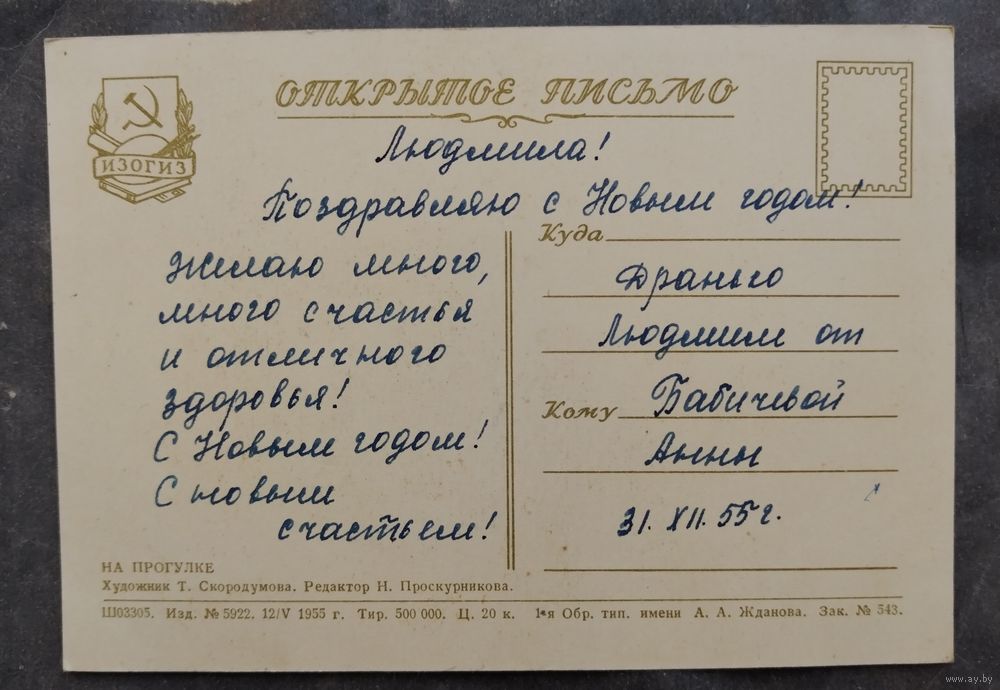 ОТКРЫТОЕ ПИСЬМО
ИЗОГИЗ
Людмила!
Поздравляю с Новым годом!
Желаю много,
много счастья
и отличного
здоровья!
С Новым годом!
С новым
счастьем!
Куда
Дранько
Людмиле от
Кому Бабичевой
Анны
31. XII. 55 г.
НА ПРОГУЛКЕ
Художник Т. Скородумова. Редактор Н. Проскурникова.
Ш03305. Изд. № 5922. 12/V 1955 г. Тир. 500 000. Ц. 20 к. 1-я Обр. тип. имени А. А. Жданова. Зак. № 543.
www.ay.by